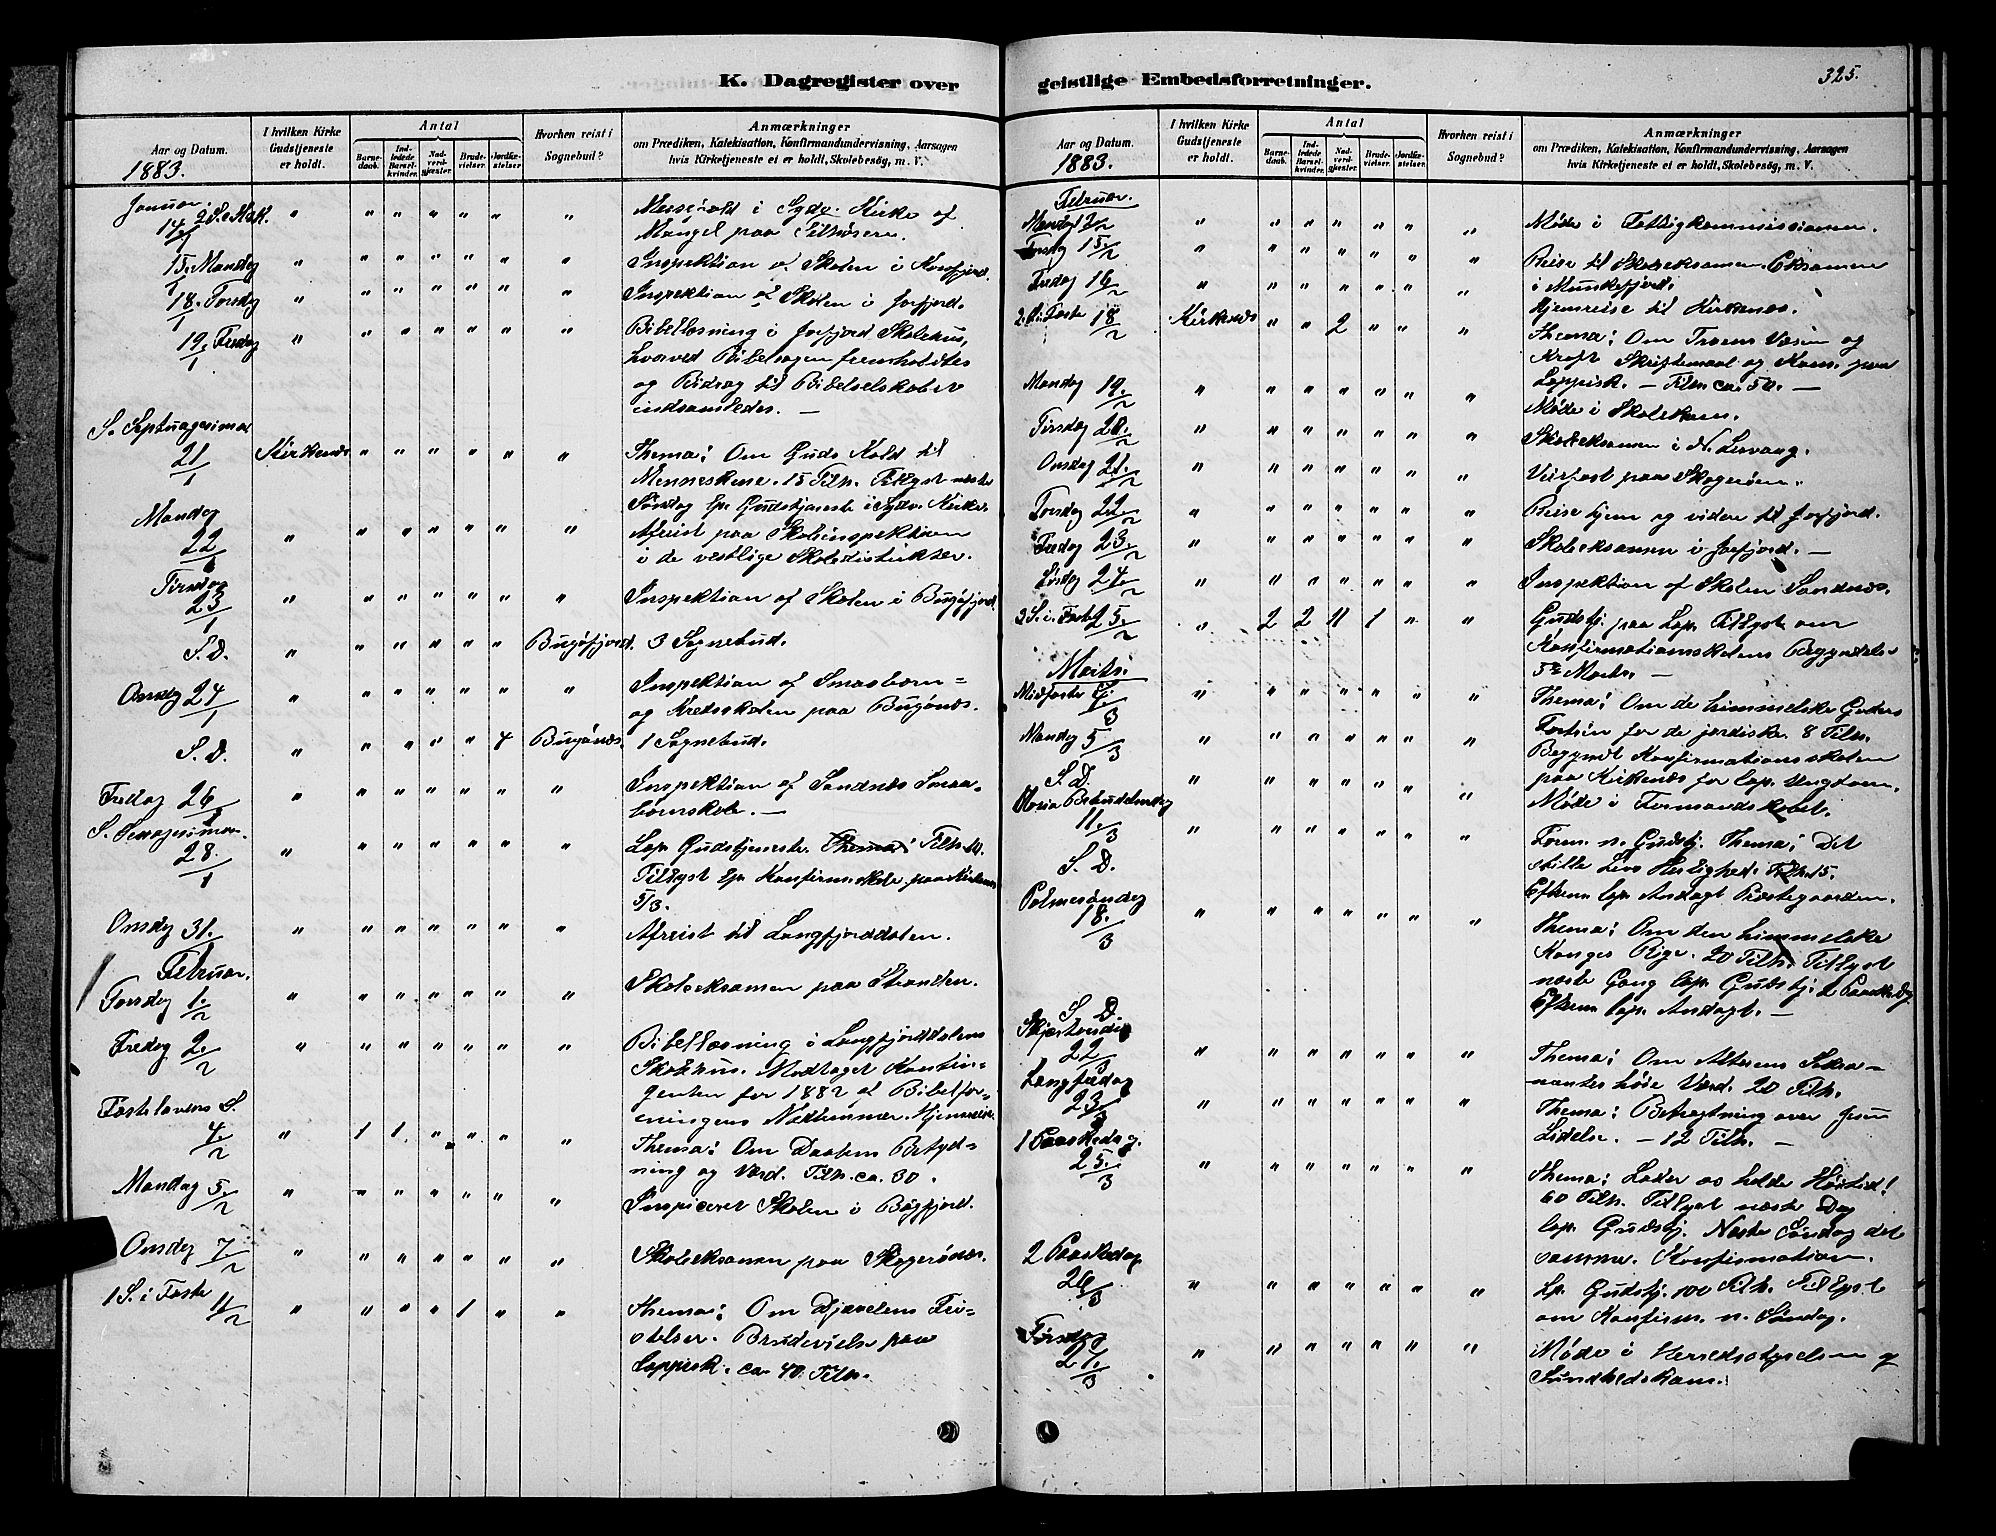 K. Dagregister over
Aar og Datum.
1883.
I hvilken Kirke Gudstjeneste er holdt.
Antal
Barnedaab.
Indledede Barselkvinder.
Nadverdgjæster.
Brudevielser.
Jordfæstelser.
Hvorhen reist i Sognebud?
Anmærkninger
om Prædiken, Katekisation, Konfirmandundervisning, Aarsagen
hvis Kirketjeneste et er holdt, Skolebesög, m. V.
Januar.
14/1 " " " " " " " Messefald i Sydv. Kirke af
Mangel paa Tilhörere.
15. Mandag " " " " " " " Inspektion af Skolen i Korsfjord.
18/1 Torsdag " " " " " " " Inspektion af Skolen i Jarfjord.
19/1 Fredag " " " " " " " Bibellæsning i Jarfjord Skolehus,
hvorved Bibelsagen fremholdtes
og Bidrag til Bibelselskabet
indsamledes. —
S. Septuagesima
21/1 Kirkenæs " " " " " " Thema: Om Guds Kald til
Menneskene. 15 Tilh. Tillyst næste
Søndag lp. Gudstjeneste i Sydv. Kirke.
Mandag
22/1 " " " " " " " Afreist paa Skoleinspektion
i de vestlige Skoledistrikter.
Tirsdag
23/1 " " " " " " " Inspektion af Skolen i Bugöfjord.
S. D. " " " " " " Bugöfjord. 3 Sognebud.
Onsdag 24/1 " " " " " " " Inspektion af Smaabørn=
og Kredsskolen paa Bugönæs.
S. D. " " " " " 4 Bugönæs. 1 Sognebud.
Fredag 26/1 " " " " " " " Inspektion af Sandnæs Smaa-
børnskole. —
S. Sexagesima
28/1 " " " " " " " Lap. Gudstjeneste. Thema: Tilh. 40.
Tillyst lp. Konfirm.skole paa Kirkenæs
5/3.
Onsdag 31/1 " " " " " " " Afreist til Langfjorddalen.
Februar.
Torsdag 1/2 " " " " " " " Skoleeksamen paa Stranden.
Fredag 2/2 " " " " " " " Bibellæsning i Langfjorddalens
Skolehus. Modtaget Kontin-
genten for 1882 af Bibelfor-
eningens Medlemmer. Hjemreise.
Fastelavens S.
4/2 " 1 1 " " " " Thema: Om Daabens Betyd-
ning og Værd. Tilh. ca. 30.
Mandag 5/2 " " " " " " " Inspiceret Skolen i Bögfjord.
Onsdag 7/2 " " " " " " " Skoleeksamen paa Skogerönæs.
1 S. i Faste 11/2 " " " " 1 " " Thema: Om Djævelens Fri-
stelser. Brudevielse paa
Lappisk. ca. 40 Tilh.
geistlige Embedsforretninger.
325.
Aar og Datum.
1883.
I hvilken Kirke Gudstjeneste er holdt.
Antal
Barnedaab.
Indledede Barselkvinder.
Nadverdgjæster.
Brudevielser.
Jordfæstelser.
Hvorhen reist i Sognebud?
Anmærkninger
om Prædiken, Katekisation, Konfirmandundervisning, Aarsagen
hvis Kirketjeneste et er holdt, Skolebesög, m. V.
Februar.
Mandag 12/2 " " " " " " " Møde i Fattigkommissionen.
Torsdag 15/2 " " " " " " " Reise til Skoleeksamen. Eksamen
Fredag 16/2 " " " " " " " i Munkefjord.
Hjemreise til Kirkenæs.
2. S. i Faste 18/2 Kirkenæs " " 2 " " " Thema: Om Troens Væsen og
Kraft. Skriftemaal og Kom. paa
Lappisk. — Tilh. ca. 50. —
Mandag 19/2 " " " " " " " Møde i Skolekom.
Tirsdag 20/2 " " " " " " " Skoleeksamen i N. Leirvaag.
Onsdag 21/2 " " " " " " " Veirfast paa Skogerøen.
Torsdag 22/2 " " " " " " " Reise hjem og videre til Jarfjord.
Fredag 23/2 " " " " " " " Skoleeksamen i Jarfjord. —
Lørdag 24/2 " " " " " " " Inspektion af Skolen Sandnæs.
3 S. i Faste 25/2 " 2 2 11 1 " " Gudstj. paa Lap. Tillyst om
Konfirmationsskolens Begyndelse
5te Marts. —
Marts.
Midfaste 4/3 " " " " " " " Thema: Om de himmelske Goders
Fortrin for de jordiske. 8 Tilh.
Mandag 5/3 " " " " " " " Begyndt Konfirmationsskolen
paa Kirkenæs for lap. Ungdom.
S. D. " " " " " " " Møde i Formandskabet.
Maria Bebudelsesdag
11/3 " " " " " " " Form. n. Gudstj. Thema: Det
stille Livs Herlighed. Tilh. 15.
S. D. Efterm. lap. Andagt Præstegaarden.
Palmesøndag
18/3 " " " " " " " Thema: Om den himmelske
Konges Rige. 20 Tilh. Tillyst
næste Gang lap. Gudstj. 2 Paaskedag
S. D. Efterm. lap. Andagt. —
Skjærtorsdag
22/3 " " " " " " " Thema: Om Alterens Sakra-
mentes høie Værd. 20 Tilh.
Langfredag
23/3 " " " " " " " Thema: Betragtning over Jesu
Lidelse. — 12 Tilh. —
1 Paaskedag.
25/3 " " " " " " " Thema: Lader os holde Høitid!
60 Tilh. Tillyst næste Dag
lap. Gudstj. Næste Søndag det
samme. Konfirmation.
2 Paaskedag
26/3 " " " " " " " Lp. Gudstj. 100 Tilh. Tillyst
om Konfirm. n. Søndag.
Tirsdag
27/3 " " " " " " " Møde i Herredsstyrelsen og
Sundhedskom.